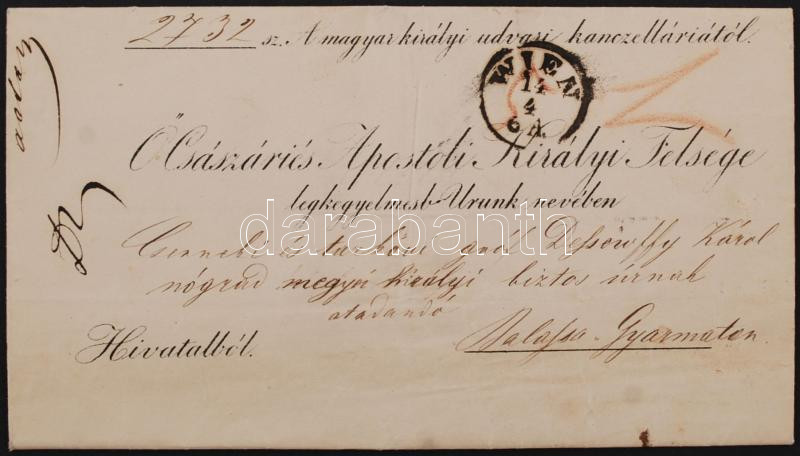 2732 sz. A magyar királyi udvari kanczelláriától.
WIEN
14
4
6 A.
Ő Császári és Apostoli Királyi Felsége
legkegyelmesb Urunk nevében
darabanth
Csernebi és tarkövi gróf Dessewffy Károl
nógrád megyei királyi biztos úrnak
átadandó
Hivatalból.
Balassa-Gyarmaton.